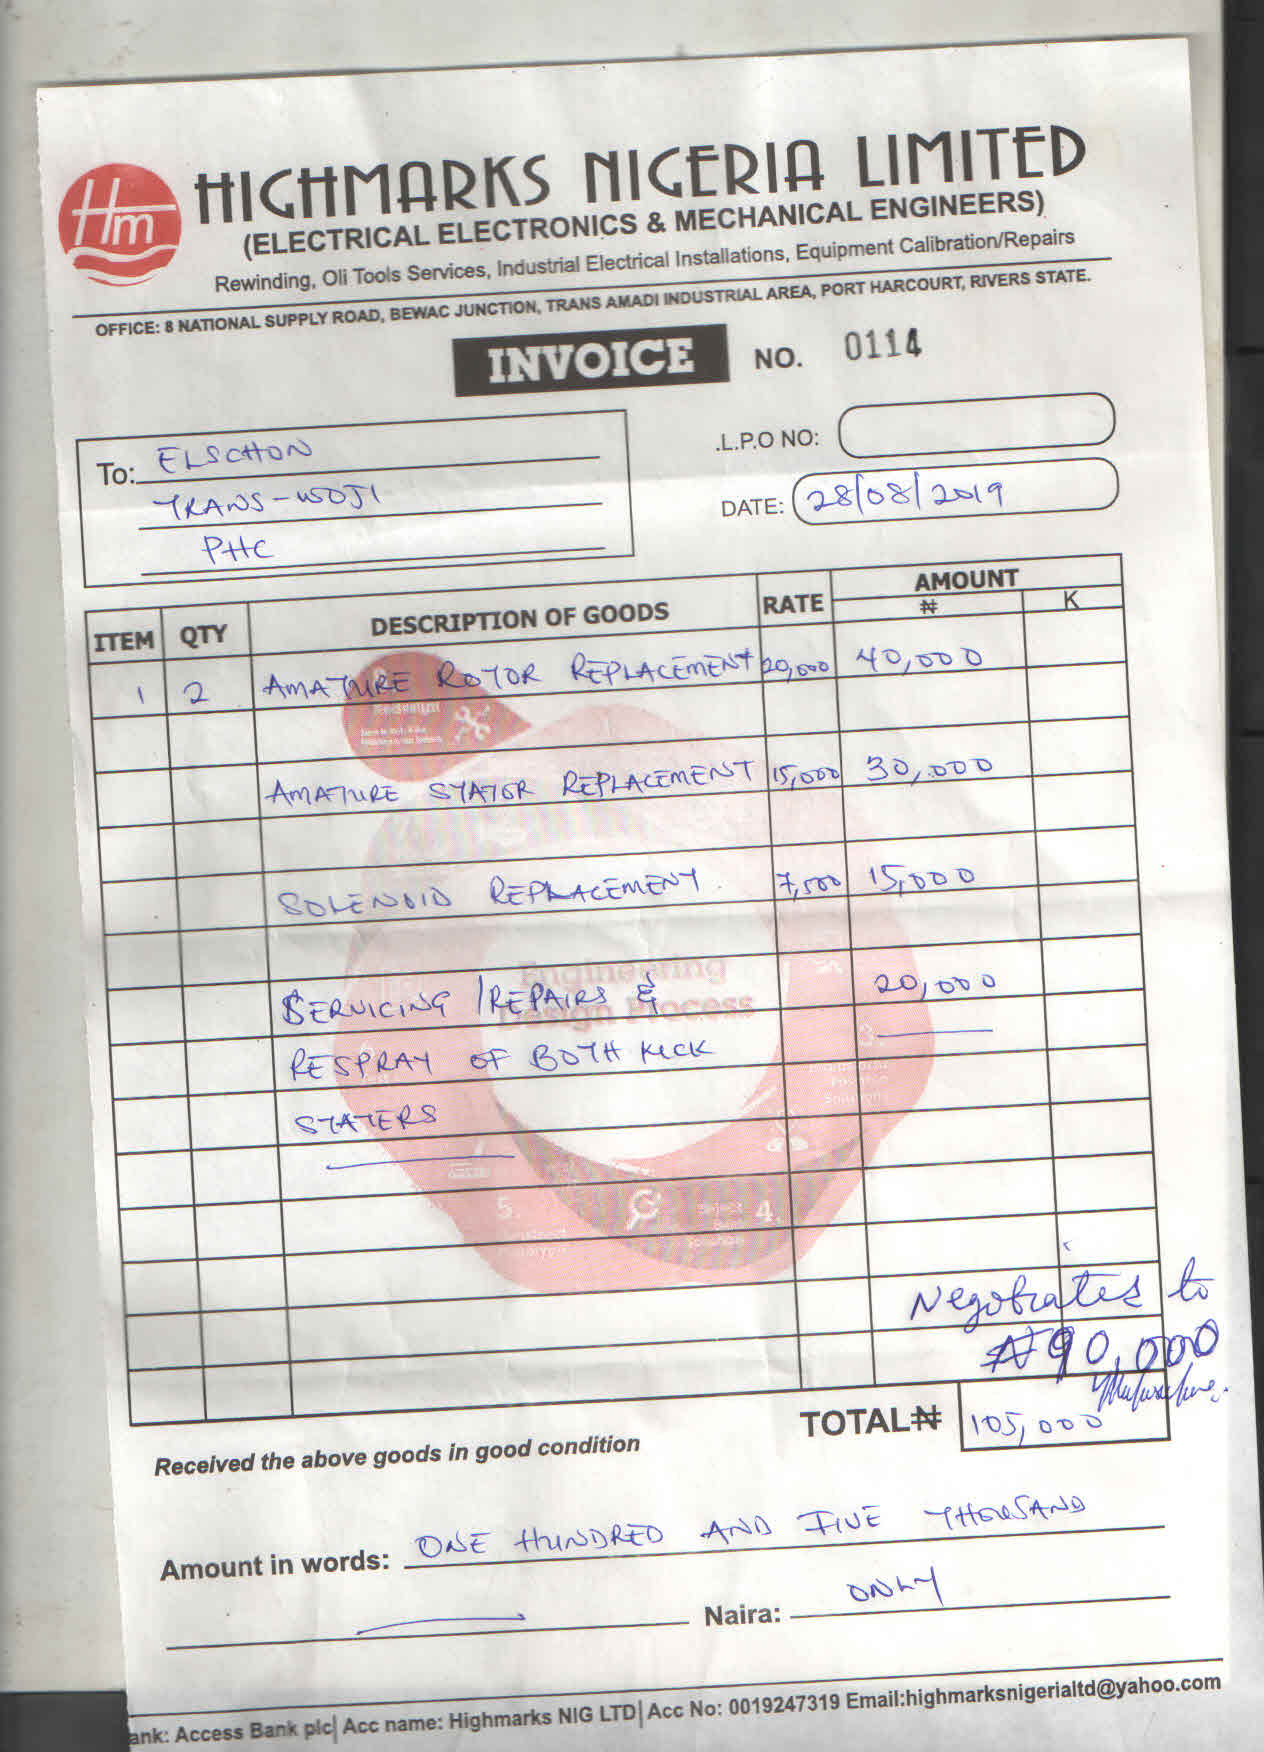 Hm
HIGHMARKS NIGERIA LIMITED
(ELECTRICAL ELECTRONICS & MECHANICAL ENGINEERS)
Rewinding, Oli Tools Services, Industrial Electrical Installations, Equipment Calibration/Repairs
OFFICE: 8 NATIONAL SUPPLY ROAD, BEWAC JUNCTION, TRANS AMADI INDUSTRIAL AREA, PORT HARCOURT, RIVERS STATE.
INVOICE NO. 0114
To: ELSCHON
TRANS-WOJI
PHC
.L.P.O NO:
DATE: 28/08/2019
ITEM QTY DESCRIPTION OF GOODS RATE AMOUNT
₦ K
1 2 AMATURE ROTOR REPLACEMENT 20,000 40,000
AMATURE STATOR REPLACEMENT 15,000 30,000
SOLENOID REPLACEMENT 7,500 15,000
SERVICING /REPAIRS & 20,000
RESPRAY OF BOTH KICK
STATERS
Engineering
Design Process
5.
4.
3
Negotiates to
₦90,000
TOTAL₦ 105,000
Received the above goods in good condition
Amount in words: ONE HUNDRED AND FIVE THOUSAND
Naira: ONLY
ank: Access Bank plc| Acc name: Highmarks NIG LTD| Acc No: 0019247319 Email:highmarksnigerialtd@yahoo.com